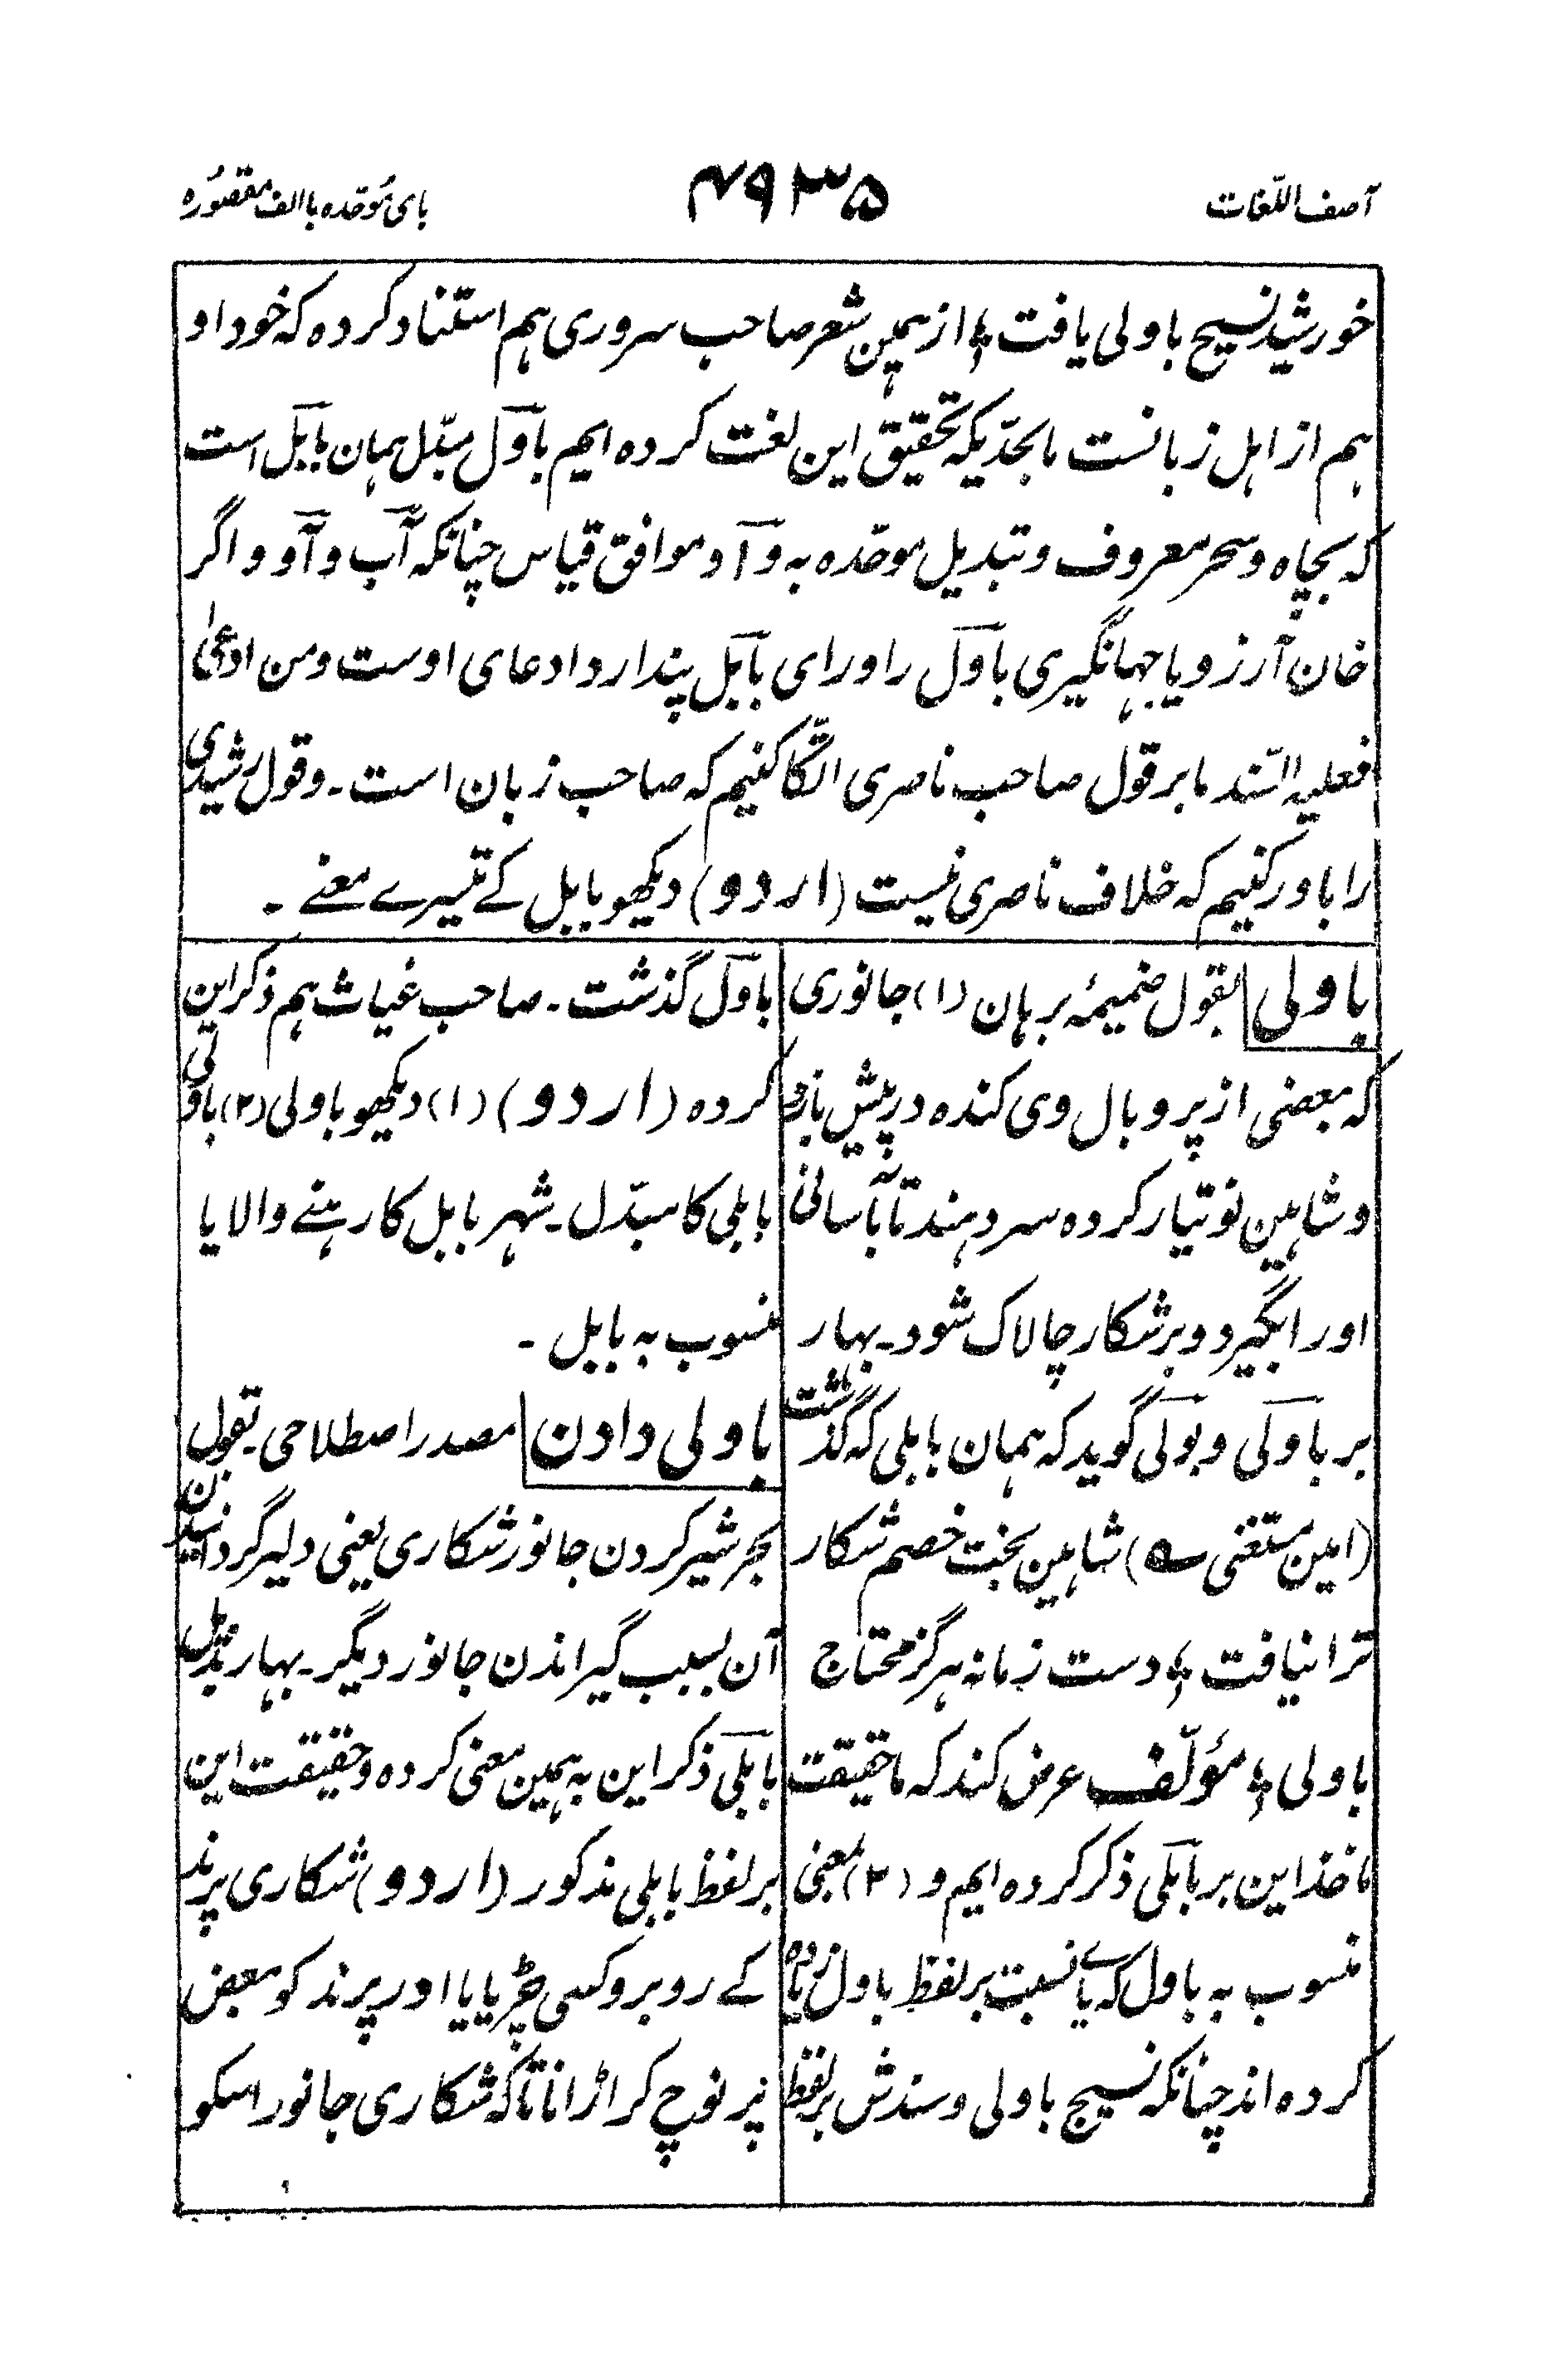 آصف اللّغات
۴۹۳۵
بای مُوحّده با الف مقصُورہ
خورشید نسیج باولی یافت ؛ از ہمین شعر صاحب سروری ہم استناد کردہ کہ خود او
ہم از اہل زبانست ما بحدّیکہ تحقیق این لغت کردہ ایم باوَل مبدّل ہمان بابَل است
کہ بچاہ و سحر معروف و تبدیل موحّدہ بہ وآو موافق قیاس چنانکہ آب و آو و اگر
خان آرزو یا جہانگیری باوَل را ورای بابَل پندارد ادعای اوست ومن ادعیٰ
فعلیہ السّند ما بر قول صاحب ناصری اتّکا کنیم کہ صاحب زبان است ۔ وقول رشیدی
را باور کنیم کہ خلاف ناصری نیست (اردو) دیکھو بابل کے تیسرے معنے ۔
باولی بقول ضمیمۂ برہان (۱) جانوری
کہ بعضی از پر و بال وی کندہ در پیش باز
و شاہین نو تیار کردہ سردہند تا بآسانی
اورا بگیرد و بر شکار چالاک شود۔ بہار
بر باوَلی و بوَلی گوید کہ ہمان بابلی کہ گذشت
(امین مستغنی ؎) شاہین بخت خصم شکار
ترا نیافت ؛ دست زمانہ ہرگز محتاج
باولی ؛ مؤلّف عرض کند کہ ما حقیقت
ماخذ این بر بابَلی ذکر کردہ ایم و (۲) بمعنی
منسوب بہ باول کہ یاے نسبت بر لفظ باول زیادہ
کردہ اند چنانکہ نسیج باولی و سندش بر لفظ
باوَل گذشت ۔ صاحب غیاث ہم ذکر این
کردہ (اردو) (۱) دیکھو باولی (۲) باولی
بابلی کا مبدّل ۔ شہر بابل کا رہنے والا یا
منسوب بہ بابل ۔
باولی دادن مصدر اصطلاحی ۔ بقول
بحر شیر کردن جانور شکاری یعنی دلیر گردانیدن
آن بسبب گیراندن جانور دیگر ۔ بہار بذیل
بابَلی ذکر این بہ ہمین معنی کردہ و حقیقت این
بر لفظ بابلی مذکور (اردو) شکاری پرند
کے روبرو کسی چڑیا یا اور پرند کو بعض
پر نوچ کر اڑانا تاکہ شکاری جانور اسکو